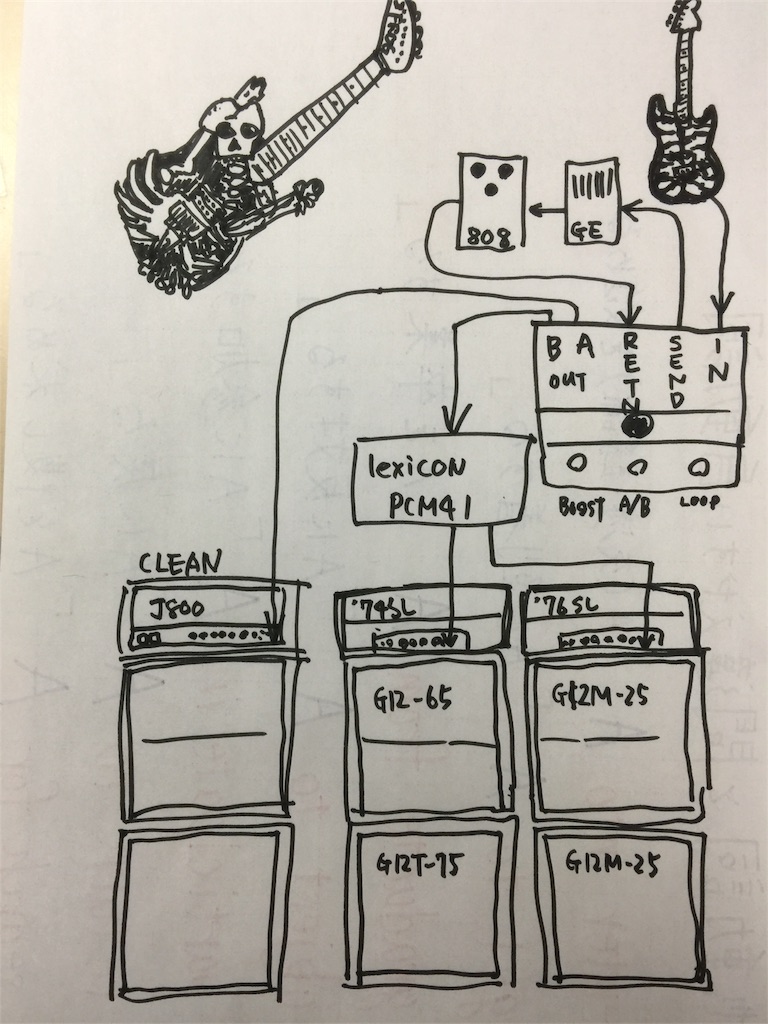 808
GE
B A RETN SEND IN
OUT
lexicon
PCM41
Boost A/B LOOP
CLEAN
J800
'74SL
'76SL
G12-65
G12M-25
G12T-75
G12M-25